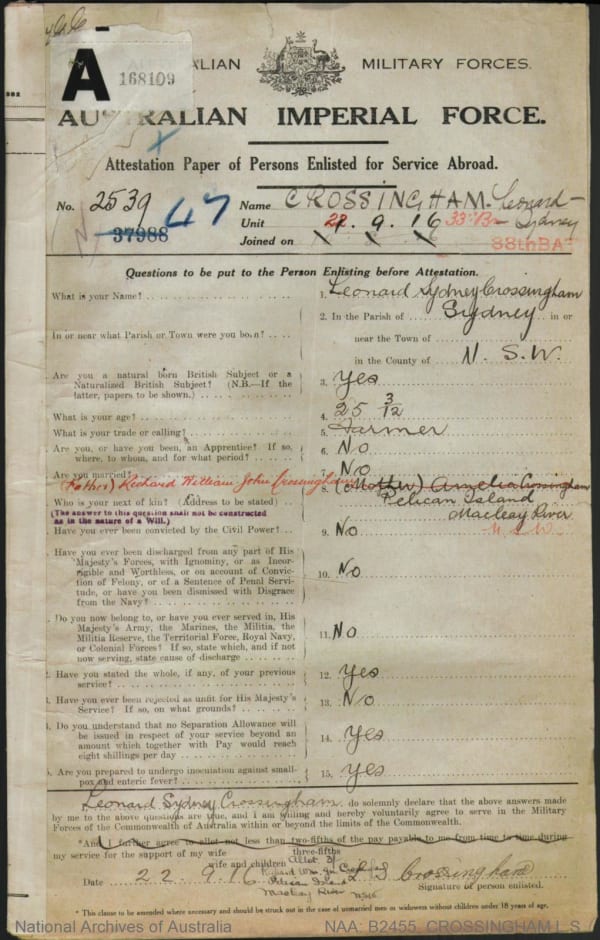 A
168109
ALIAN MILITARY FORCES.
AUSTRALIAN IMPERIAL FORCE.
Attestation Paper of Persons Enlisted for Service Abroad.
No. 2539 47 Name CROSSINGHAM Leonard
37988 Unit 33rd Bn Sydney
Joined on 22.9.16
Questions to be put to the Person Enlisting before Attestation.
What is your Name? 1. Leonard Sydney Crossingham
In or near what Parish or Town were you born? 2. In the Parish of Sydney in or
near the Town of
in the County of N. S. W.
Are you a natural born British Subject or a
Naturalized British Subject? (N.B.—If the
latter, papers to be shown.) 3. Yes
What is your age? 4. 25 3/12
What is your trade or calling? 5. Farmer
Are you, or have you been, an Apprentice? If so,
where, to whom, and for what period? 6. No
Are you married? 7. No
(Father) Richard William John Crossingham 8. (Mother) Amelia Crossingham
Who is your next of kin? (Address to be stated) Pelican Island
(The answer to this question shall not be constructed Macleay River
as in the nature of a Will.) N.S.W.
Have you ever been convicted by the Civil Power? 9. No
Have you ever been discharged from any part of His
Majesty's Forces, with Ignominy, or as Incor-
rigible and Worthless, or on account of Convic-
tion of Felony, or of a Sentence of Penal Servi-
tude, or have you been dismissed with Disgrace
from the Navy? 10. No
Do you now belong to, or have you ever served in, His
Majesty's Army, the Marines, the Militia, the
Militia Reserve, the Territorial Force, Royal Navy,
or Colonial Forces? If so, state which, and if not
now serving, state cause of discharge 11. No
Have you stated the whole, if any, of your previous
service? 12. Yes
Have you ever been rejected as unfit for His Majesty's
Service? If so, on what grounds? 13. No
Do you understand that no Separation Allowance will
be issued in respect of your service beyond an
amount which together with Pay would reach
eight shillings per day 14. Yes
Are you prepared to undergo inoculation against small-
pox and enteric fever? 15. Yes
Leonard Sydney Crossingham do solemnly declare that the above answers made
by me to the above questions are true, and I am willing and hereby voluntarily agree to serve in the Military
Forces of the Commonwealth of Australia within or beyond the limits of the Commonwealth.
*And I further agree to allot not less than two-fifths of the pay payable to me from time to time during
three-fifths
my service for the support of my wife
wife and children
Pelican Island
Macleay River
Date 22.9.16 L S Crossingham
Signature of person enlisted.
* This clause to be amended where necessary and should be struck out in the case of unmarried men or widowers without children under 18 years of age.
National Archives of Australia NAA: B2455, CROSSINGHAM L S